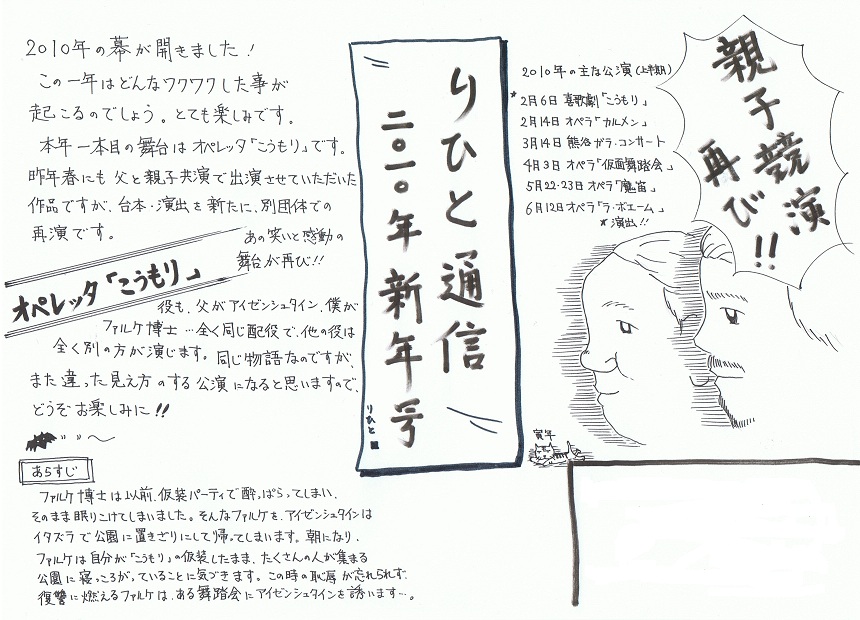 2010年の幕が開きました！
この一年はどんなワクワクした事が
起こるのでしょう。とても楽しみです。
本年一本目の舞台はオペレッタ「こうもり」です。
昨年春にも父と親子共演で出演させていただいた
作品ですが、台本・演出を新たに、別団体での
再演です。
あの笑いと感動の
舞台が再び!!
オペレッタ「こうもり」
役も、父がアイゼンシュタイン、僕が
ファルケ博士…全く同じ配役で、他の役は
全く別の方が演じます。同じ物語なのですが、
また違った見え方のする公演になると思いますので、
どうぞお楽しみに!!
あらすじ
ファルケ博士は以前、仮装パーティで酔っぱらってしまい、
そのまま眠りこけてしまいました。そんなファルケを、アイゼンシュタインは
イタズラで公園に置きざりにして帰ってしまいます。朝になり、
ファルケは自分が「こうもり」の仮装したまま、たくさんの人が集まる
公園に寝っころがっていることに気づきます。この時の恥辱が忘れられず、
復讐に燃えるファルケは、ある舞踏会にアイゼンシュタインを誘います…。
りひと通信
二〇一〇年新年号
りひと
2010年の主な公演(上半期)
*2月6日 喜歌劇「こうもり」
2月14日 オペラ「カルメン」
3月14日 熊谷ガラ・コンサート
4月3日 オペラ「仮面舞踏会」
5月22・23日 オペラ「魔笛」
6月12日 オペラ「ラ・ボエーム」
*演出!!
親子競演
再び!!
寅年